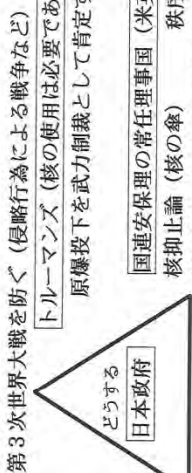 第３次世界大戦を防ぐ（侵略行為による戦争など）
トルーマンズ（核の使用は必要であ
原爆投下を武力制裁として肯定す
国連安保理の常任理事国（米英
核抑止論（核の傘）
秩序
どうする
日本政府